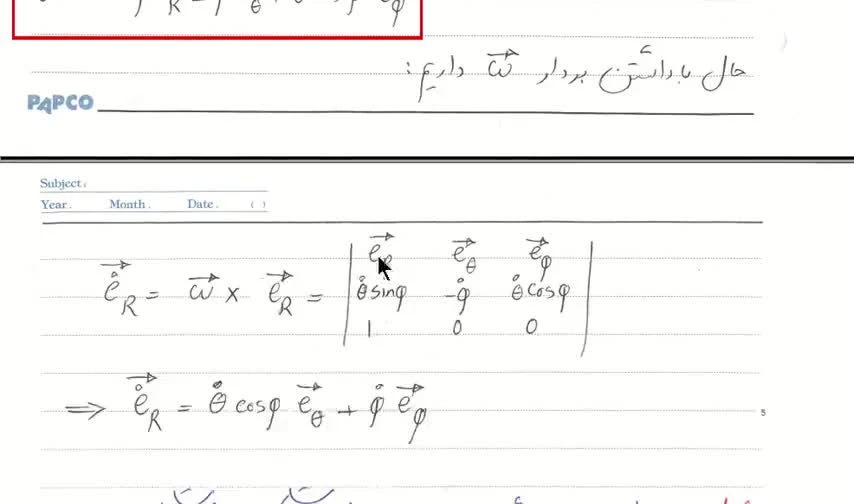 حال با داشتن بردار ω⃗ داریم:
PAPCO
Subject:
Year. Month. Date. ( )
e⃗̊_R = ω⃗ × e⃗_R = | e⃗_R e⃗_θ e⃗_φ |
| θ̊ sinφ -φ̊ θ̊ cosφ |
| 1 0 0 |
⇒ e⃗̊_R = θ̊ cosφ e⃗_θ + φ̊ e⃗_φ
5